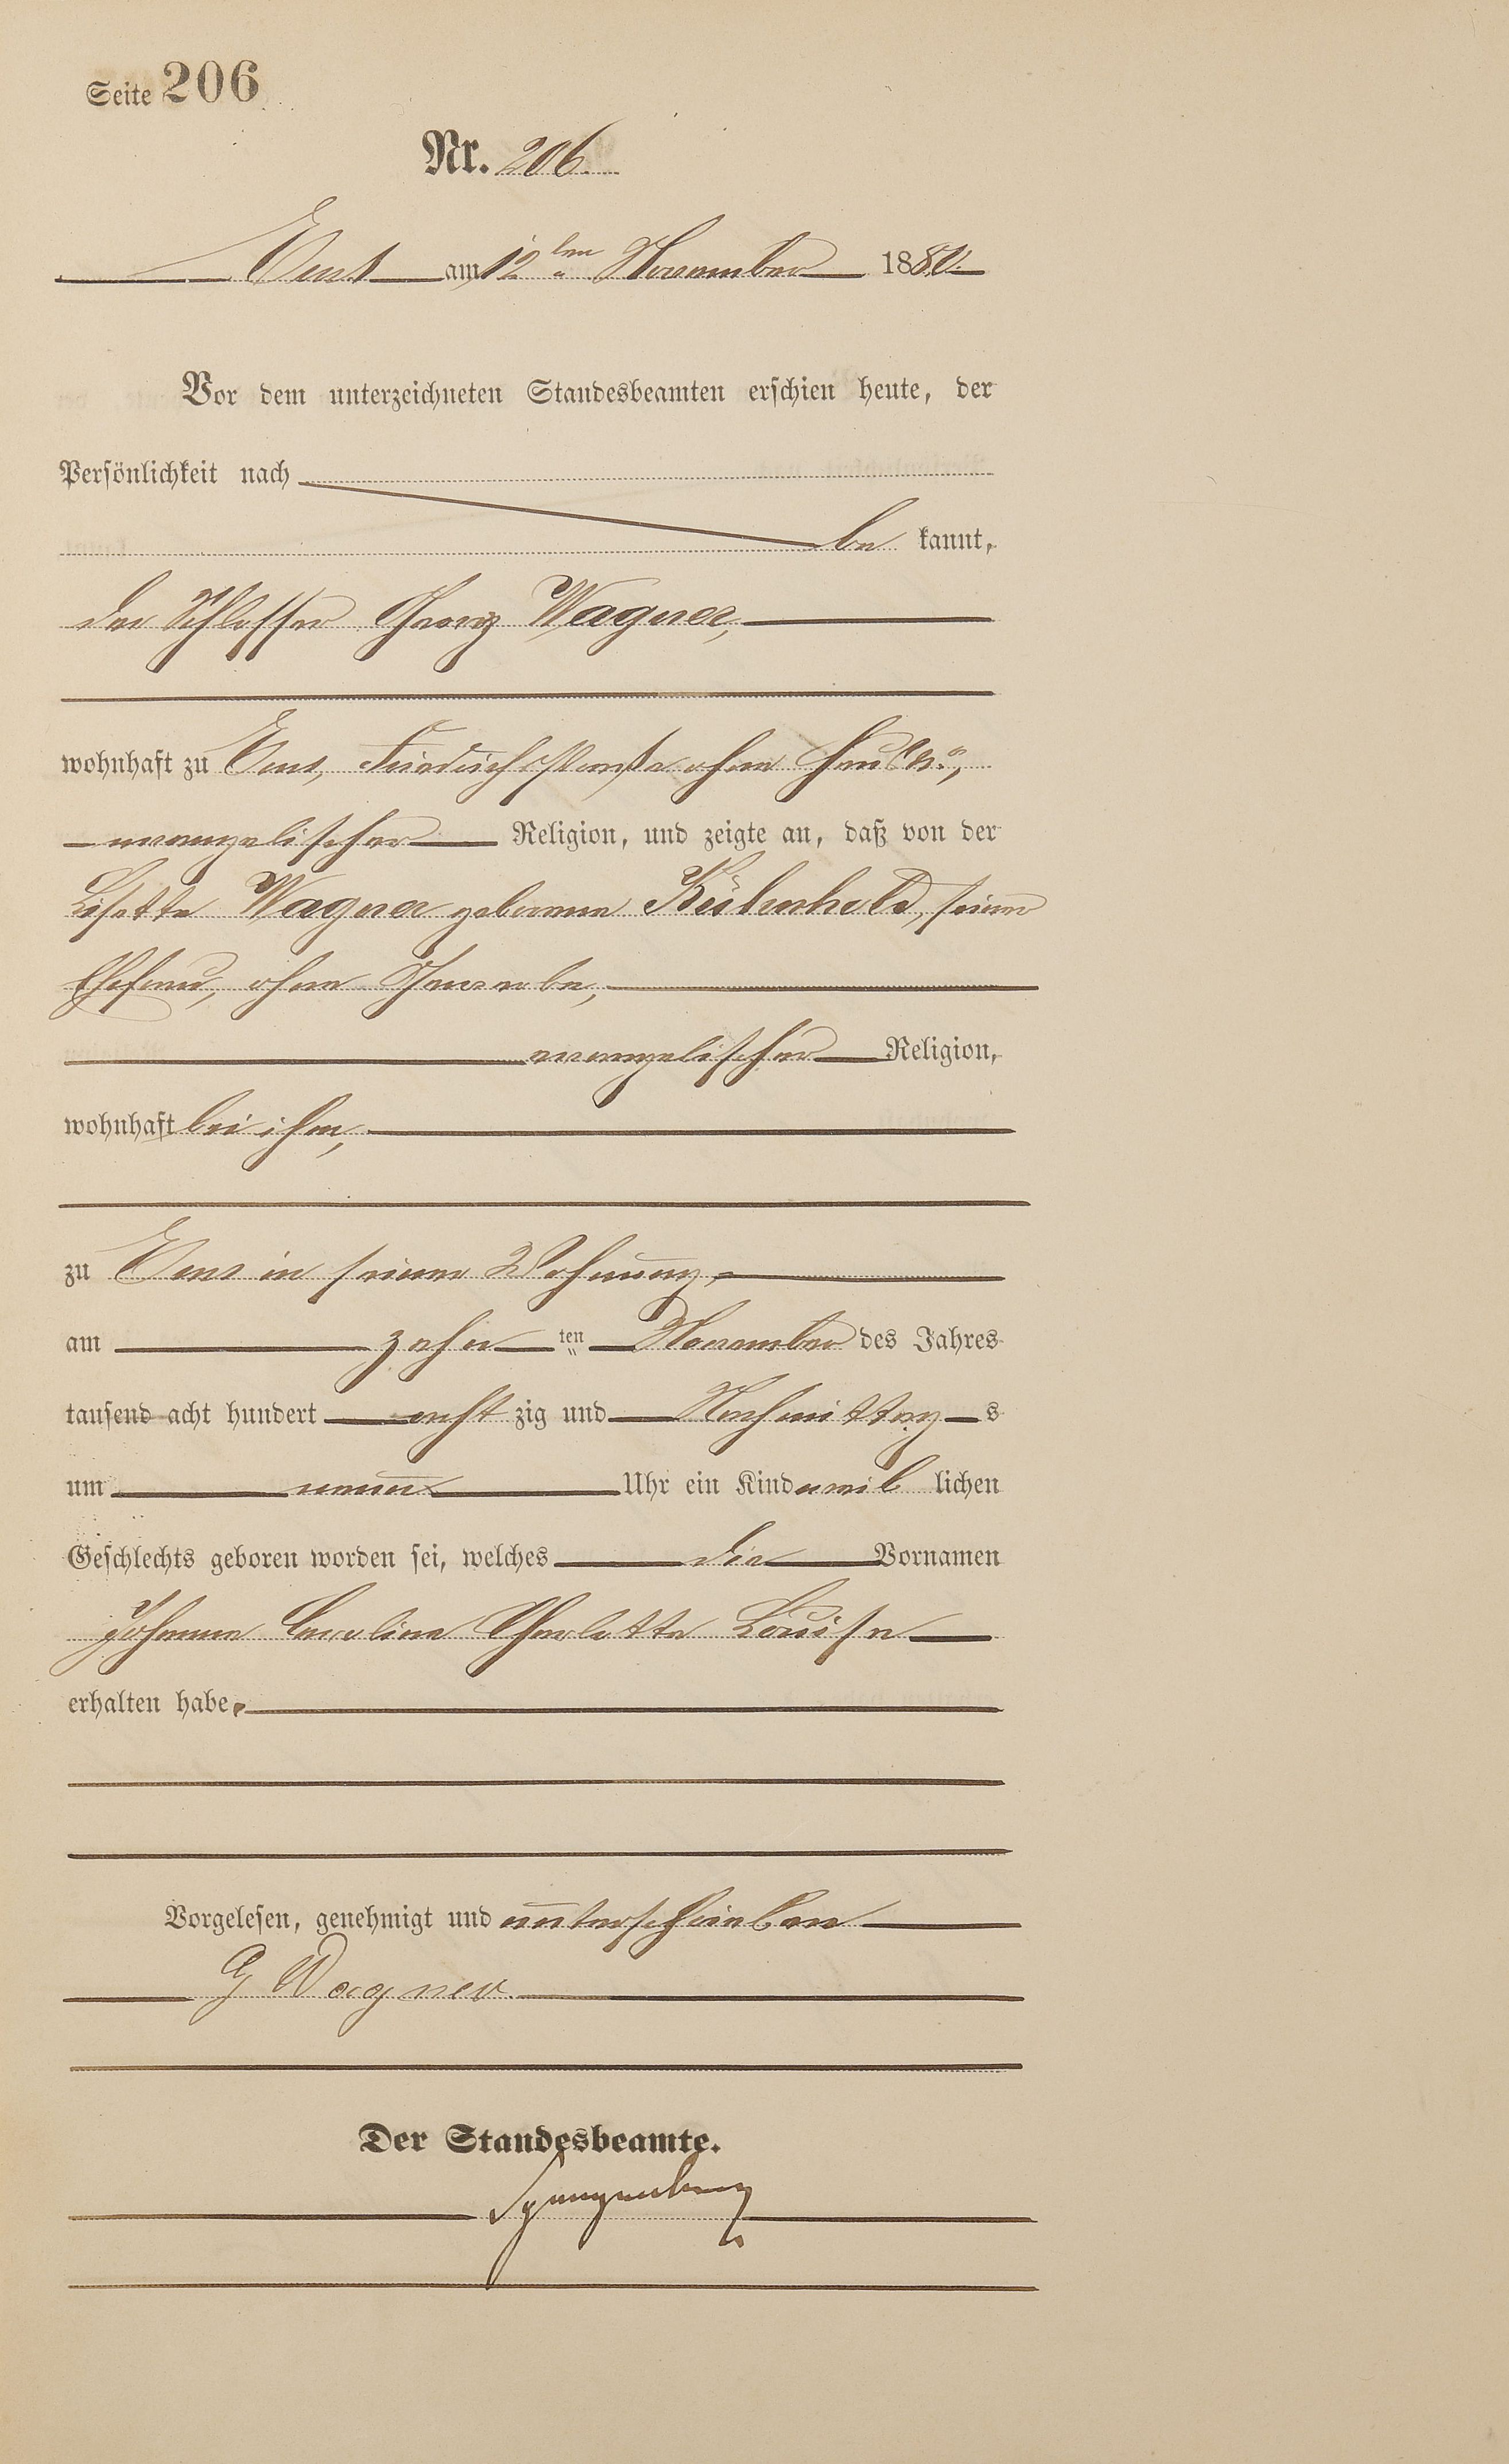 Seite 206
Nr. 206.
Ems am 12ten November 1880.
Vor dem unterzeichneten Standesbeamten erschien heute, der
Persönlichkeit nach
be kannt,
der Schlosser Georg Wagner,
wohnhaft zu Ems, Friedrichstraße ohne Haus No,
evangelischer Religion, und zeigte an, daß von der
Lisette Wagner geborene Kühnhold, seiner
Ehefrau, ohne Gewerbe,
evangelischer Religion,
wohnhaft bei ihm,
zu Ems in seiner Wohnung,
am zehn ten November des Jahres
tausend acht hundert acht zig und Nachmittag s
um neun Uhr ein Kind weib lichen
Geschlechts geboren worden sei, welches die Vornamen
Johanna Carolina Charlotte Louise
erhalten habe.
Vorgelesen, genehmigt und unterschrieben
G Wagner.
Der Standesbeamte.
Spangenberg